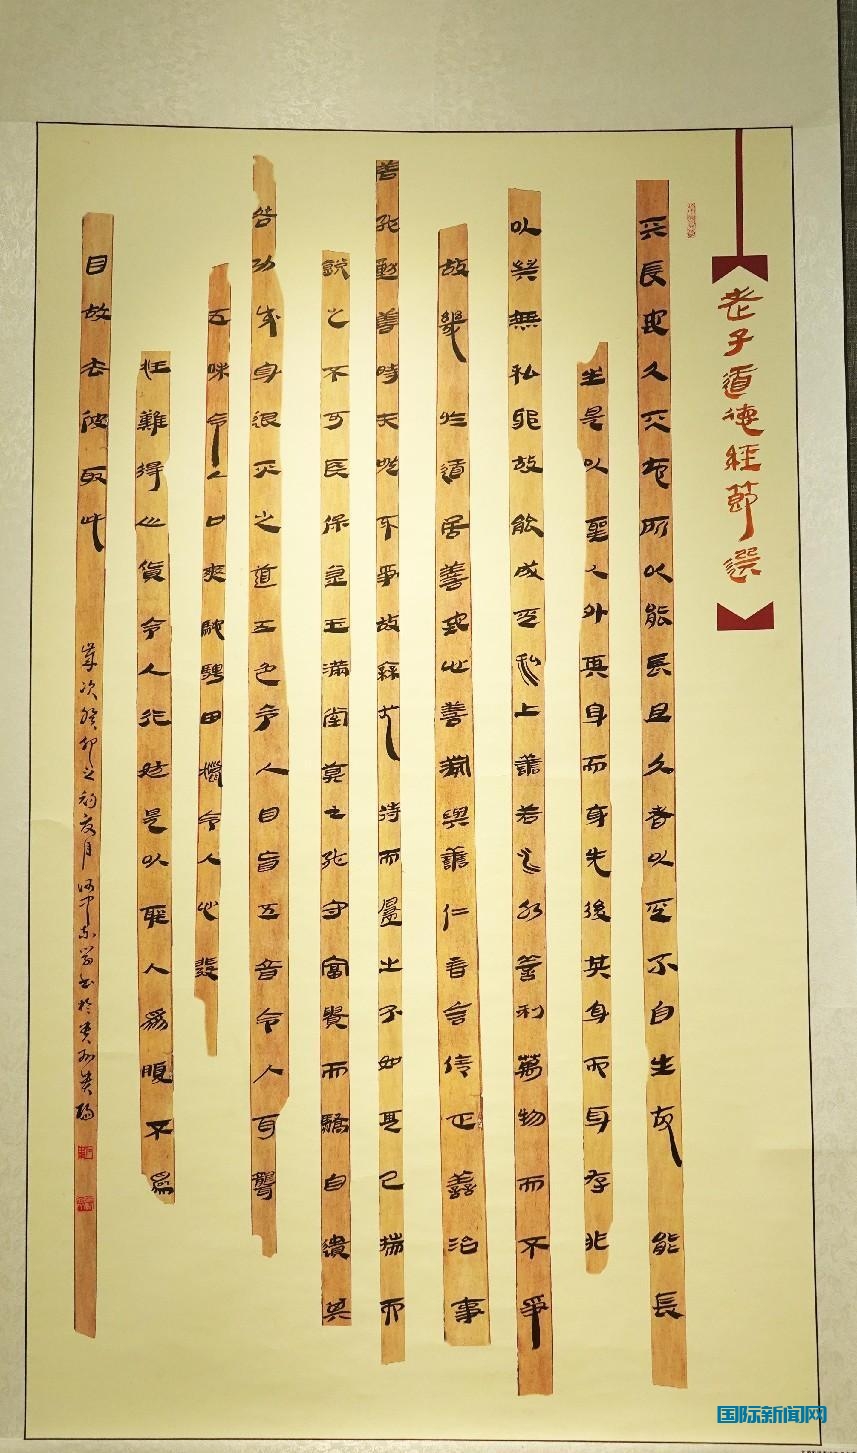 老子道德經節選
天長地久天地所以能長且久者以其不自生故能長
生是以聖人外其身而身先後其身而身存非
以其無私邪故能成其私上善若水水善利萬物而不爭
故幾於道居善地心善淵與善仁言善信正善治事
善能動善時夫唯不爭故無尤持而盈之不如其已揣而
銳之不可長保金玉滿堂莫之能守富貴而驕自遺其
咎功成身退天之道五色令人目盲五音令人耳聾
五味令人口爽馳騁田獵令人心發
狂難得之貨令人行妨是以聖人爲腹不爲
目故去彼取此
歲次癸卯之初夏月書於貴州貴陽
国际新闻网